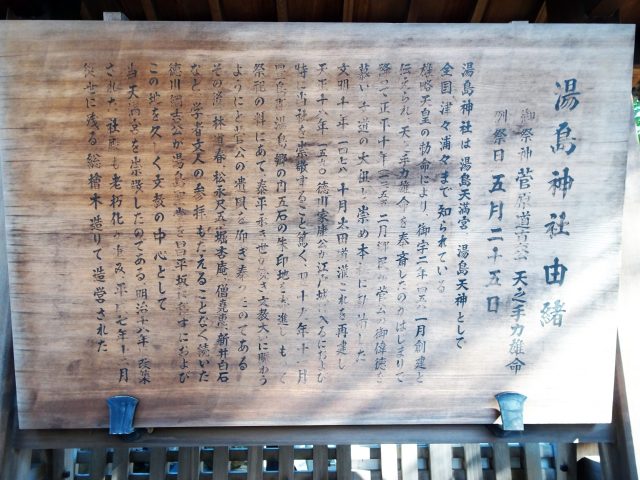 湯島神社由緒
御祭神 菅原道真公 天之手力雄命
例祭日 五月二十五日
湯島神社は 湯島天満宮 湯島天神として
全国津々浦々まで知られている
雄略天皇の勅命により 御宇二年 一月創建と
伝えられ 天之手力雄命を奉斎したのがはじまりで
降って正平十年 二月 郷民が菅公の御偉徳を
慕い 文道の大祖と崇め本社に勧請した
文明十年 十月 太田道灌これを再建し
天正十八年 徳川家康公が江戸城に入るにおよび
特に当社を崇敬すること篤く 十九年十一月
豊島郡湯島郷の内五石の朱印地を寄進し もって
祭祀の料にあて 泰平永き世が続き 文教大いに賑わう
ようにと菅公の遺風を仰ぎ奉ったのである
その後 林道春 松永尺五 堀杏庵 僧堯恵 新井白石
など 学者文人の参拝もたえることなく続いた
徳川綱吉公が湯島聖堂を昌平坂に移すにおよび
この地を久しく文教の中心として
当天満宮を崇敬したのである 明治十八年 改築
された社殿も老朽化が進み 平成七年十二月
後世に残る総檜木造りで造営された